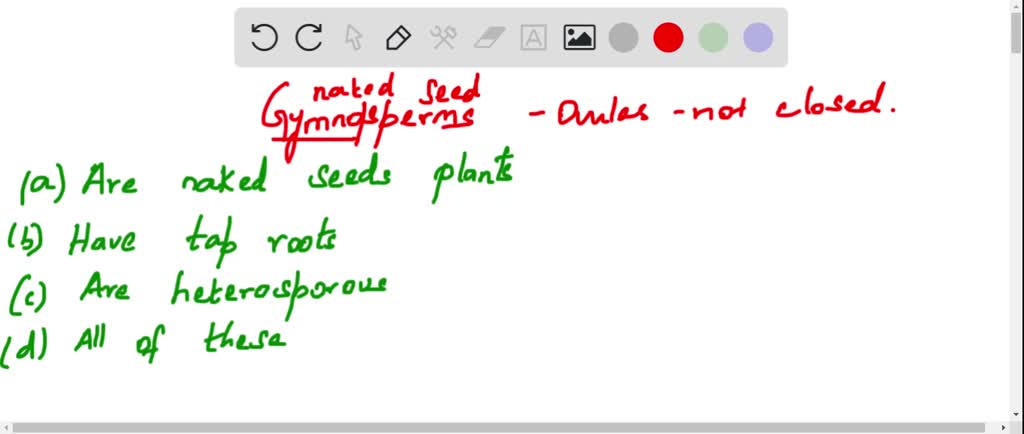 naked seed
Gymnosperms - Ovules - not closed.
(a) Are naked seeds plants
(b) Have tap roots
(c) Are heterosporous
(d) All of these